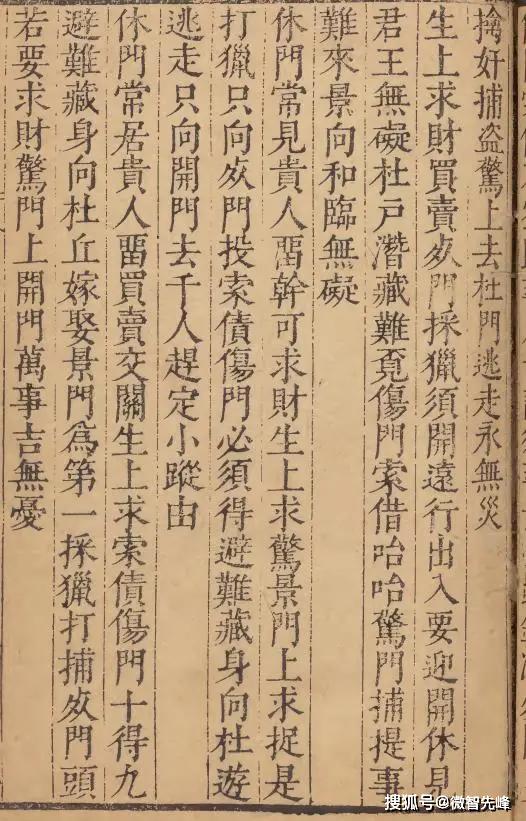 擒奸捕盗驚上去杜門逃走永無災
生上求財買賣㱙門採獵須開遠行出入要迎開休見
君王無礙杜戶潛藏難覓傷門索借咍咍驚門捕捉事
難來景向和臨無礙
休門常見貴人畱幹可求財生上求驚景門上求捉是
打獵只向㱙門投索債傷門必須得避難藏身向杜遊
逃走只向開門去千人趕定小蹤由
休門常居貴人畱買賣交關生上求索債傷門十得九
避難藏身向杜丘嫁娶景門為第一採獵打捕㱙門頭
若要求財驚門上開門萬事吉無憂
搜狐号@微智先峰